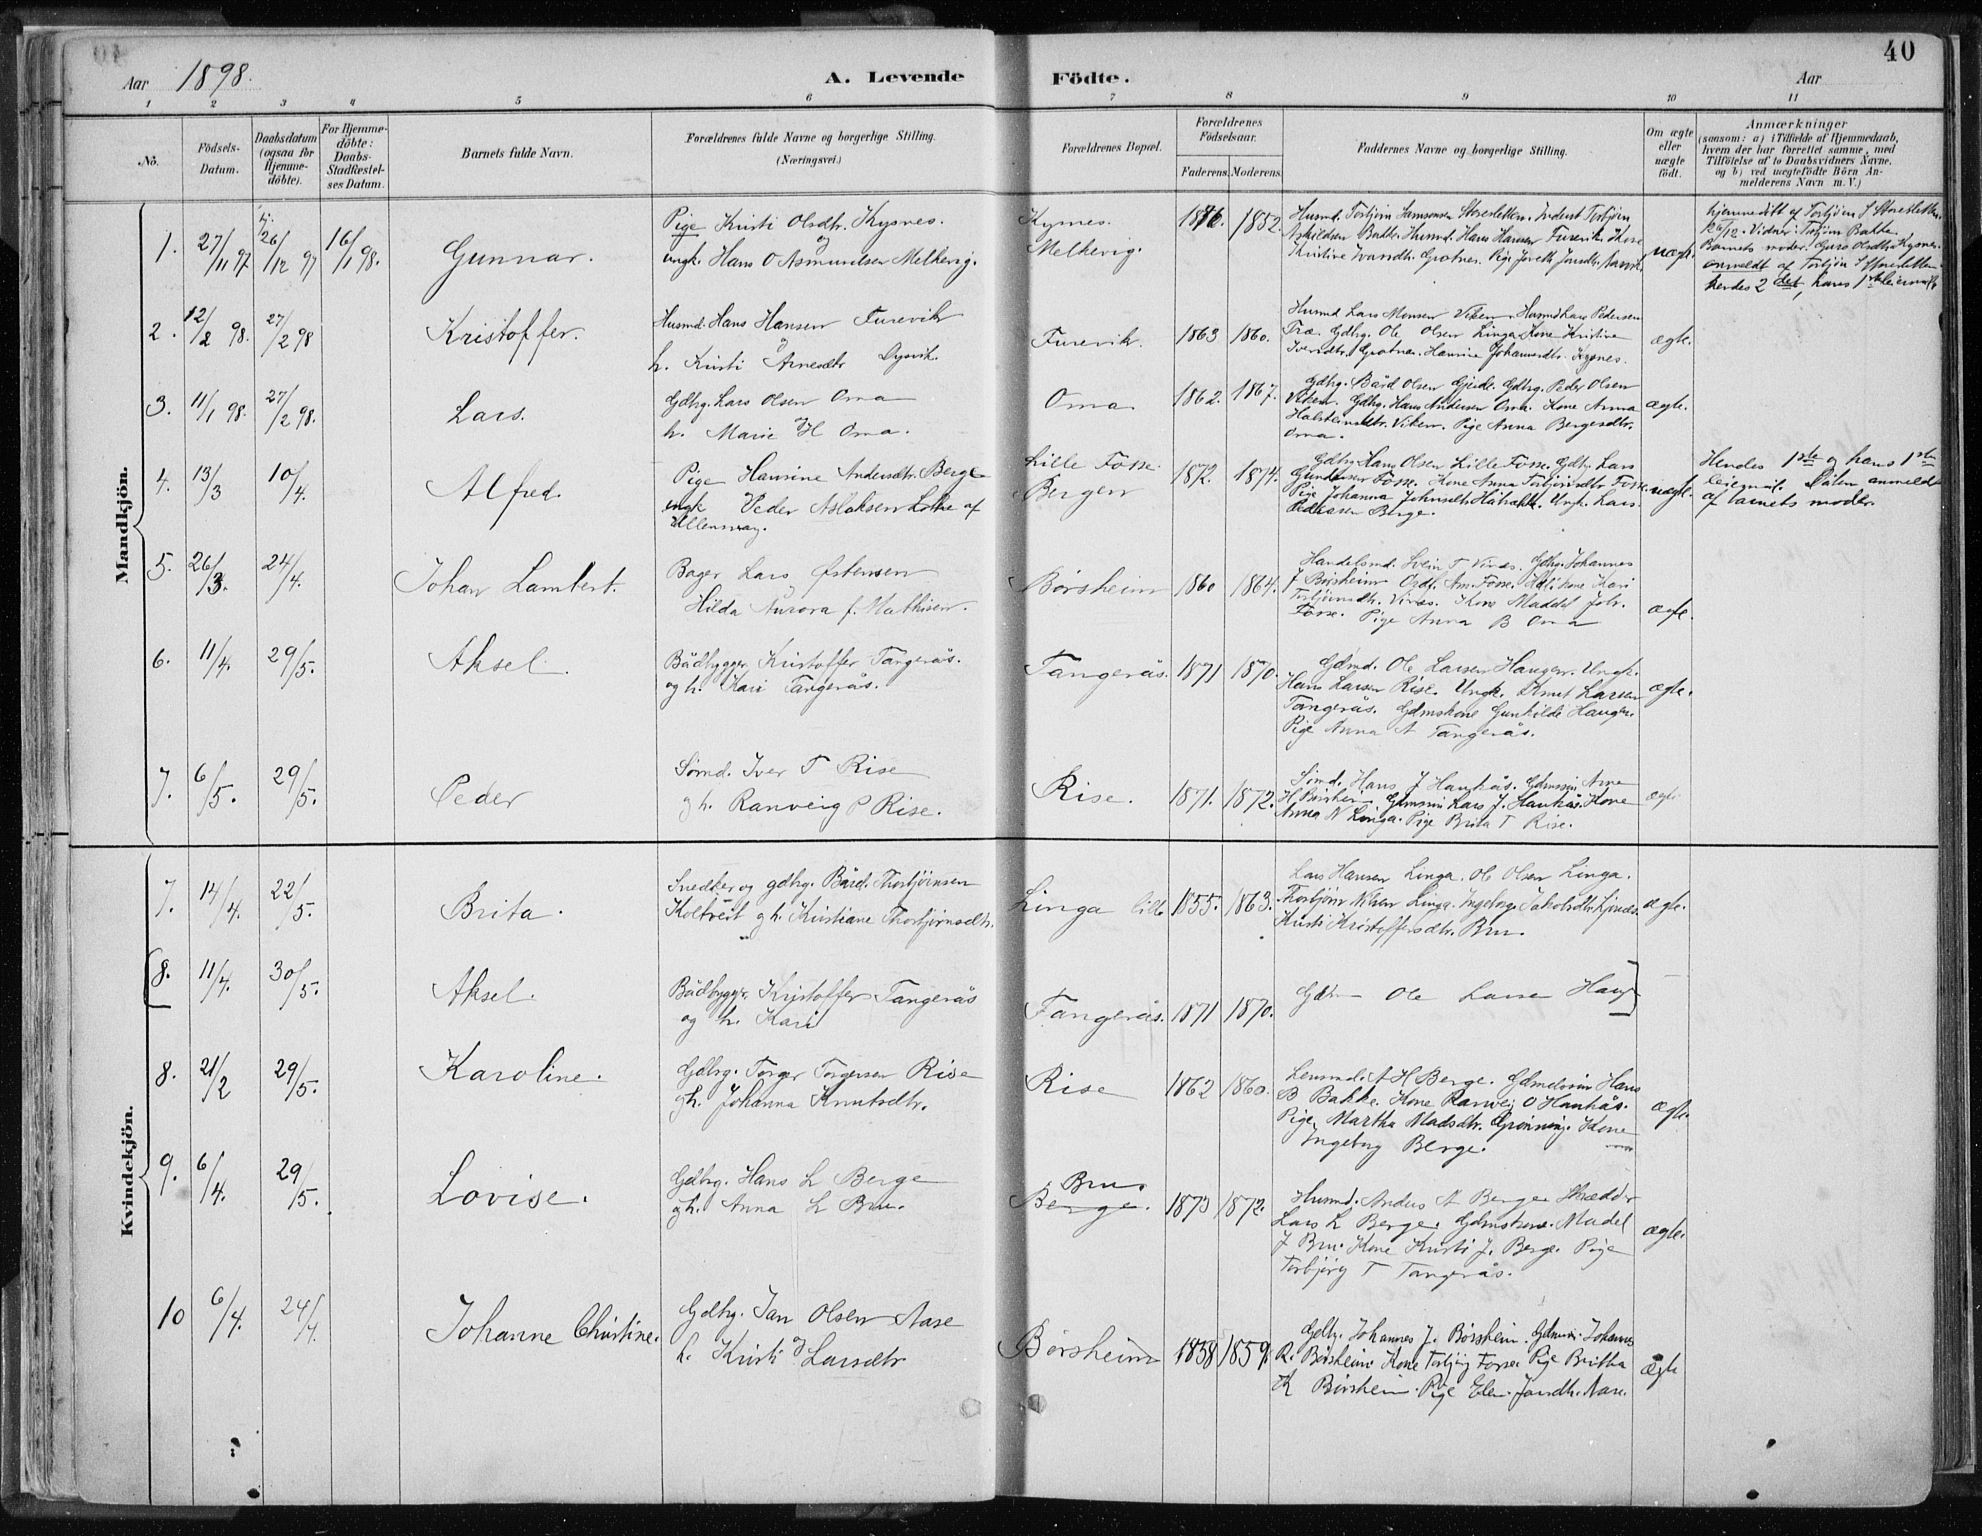 40
Aar 1898.
A. Levende Födte.
Aar
1 2 3 4 5 6 7 8 9 10 11
No.
Födsels-
Datum.
Daabsdatum
(ogsaa for
Hjemme-
döbte).
For Hjemme-
döbte:
Daabs-
Stadfæstel-
ses Datum.
Barnets fulde Navn.
Forældrenes fulde Navne og borgerlige Stilling.
(Næringsvei.)
Forældrenes Bopæl.
Forældrenes
Födselsaar.
Faderens. Moderens.
Faddernes Navne og borgerlige Stilling.
Om ægte
eller
uægte
födt.
Anmærkninger
(saasom: a) i Tilfælde af Hjemmedaab,
hvem der har forrettet samme, med
Tilföielse af to Daabsvidners Navne,
og b) ved uægtefödte Börn An-
melderens Navn m. V.)
Mandkjön.
1. 27/11 97 hj. 26/12 97 16/1 98. Gunnar.
Pige Kristi Olsdtr. Kysnes.
og
ungk. Hans O Asmundsen Melkevig.
Kysnes.
Melkevig.
1876. 1852.
Husmd. Torbjørn Samsonsen Storesletten. Inderst Torbjørn
Askildsen Bakke. Husmd. Hans Hansen Furevik. Kone
Kristine Ivarsdtr. Grotnes. Pige
uægte.
hjemmedöbt af Torbjørn S Storesletten
26/12. Vidner: Torbjørn Bakke
Barnets moder. Guro Olsdtr. Kysnes.
anmeldt af Torbjørn S Storesletten
hendes 2det, hans 1ste leiermål
2. 12/2 98. 27/2 98 Kristoffer.
Husmd. Hans Hansen Furevik
og
h. Kristi Arnesdtr Dysvik.
Furevik. 1863 1860.
Husmd Lars Monsen Viken. Husmd Lars Pedersen
Træ. Gdbrg. Ole Olsen Linga. Kone Kristine
Iversdtr. Grotnes. Hansine Johannesdtr. Kysnes.
ægte.
3. 11/1 98. 27/2 98. Lars.
Gdbrg. Lars Olsen Oma
og
h. Marie H Oma.
Oma 1862. 1867.
Gdbrg. Bård Olsen Gjerde. Gdbrg. Peder Olsen
Viken. Gdbrg. Hans Andersen Oma. Kone Anna
Halsteinsdtr. Viken. Pige Anna Bergesdtr.
Oma.
ægte.
4. 13/3 10/4. Alfred.
Pige Hansine Andersdtr. Berge
ungk Peder Aslaksen Lothe af
Ullensvang.
Lille Fosse.
Bergen
1872. 1874.
Gdbrg Hans Olsen Lille Fosse. Gdbrg. Lars
Gundersen Fosse. Kone Anna Torbjørnsdtr Fosse.
Pige Johanna Johnsdtr. Ungk. Lars
Pedersen Berge.
uægte.
Hendes 1ste og hans 1ste
leiermål. Sålen anmeldt
af barnets moder.
5. 26/3. 24/4. Johan Lambert.
Bager Lars Østensen
Hilda Aurora f. Mathisen.
Börsheim 1860 1864.
Handelsmd. Svein T Vines. Gdbrg. Johannes
J Börsheim Kone Kari
Torbjörnsdtr. Vines. Kone Madel Joh.
Fosse. Pige Anna B Oma
ægte.
6. 11/4. 29/5. Aksel.
Bådbygger Kristoffer Tangerås.
og h. Kari Tangerås.
Tangerås. 1871 1870.
Gdmd. Ole Larsen Haugen. Ungk.
Hans Larsen Rise. Ungk. Knut Larsen
Tangerås. Gdmskone Gunhilde Haugen.
Pige Anna A Tangerås.
ægte.
7. 6/5. 29/5. Peder
Sömd. Iver T Rise
og h. Ranveig P Rise.
Rise. 1871. 1872.
Sömd. Hans J Haukås. Gdmssön Arne
H Börsheim. Gdmssön Lars J. Haukås. Kone
Anna N Linga. Pige Brita T Rise.
ægte
Kvindekjön.
7. 14/4. 22/5. Brita.
Snedker og gdbrg. Bård Thorbjørnsen
Koltveit og h. Kristiane Thorbjørnsdtr.
Linga lille 1855. 1863.
Lars Hansen Linga. Ole Olsen Linga.
Thorbjörn Nilsen Linga. Ingeborg Jakobsdtr.
Kristi Kristoffersdtr. Bru.
ægte.
8. 11/4. 30/5. Aksel.
Bådbygger. Kristoffer Tangerås
og h. Kari
Tangerås. 1871 1870.
Gdm Ole Larsen Haug
8. 21/2 29/5. Karoline.
Gdbrg. Torger Torgersen Rise
og h. Johanna Knutsdtr.
Rise 1862 1860.
Lensmd. A H Berge. Gdmdssön Hans
B Bakke. Kone Ranvei O Haukås.
Pige Martha Madsdtr. Grønning. Kone
Ingeborg Berge.
ægte.
9. 6/4. 29/5. Lovise.
Gdbrg. Hans L Berge
og h. Anna L Bru.
Bru
Berge.
1873 1872.
Husmd. Anders A Berge Skrædder
Lars L Berge. Gdmskone. Madel
J Bru. Kone Kristi J. Berge. Pige
Torbjörg T Tangerås.
ægte.
10 6/4. 24/4. Johanne Christine.
Gdbrg. Jan Olsen Aase
og
h. Kristi Larsdtr
Börsheim 1858 1859.
Gdbr. Johannes J. Börsheim. Gdmssön. Johannes
R. Börsheim. Kone Torbjörg Fosse. Pige Britha
K Börsheim. Pige Elen Jansdtr. Aase.
ægte